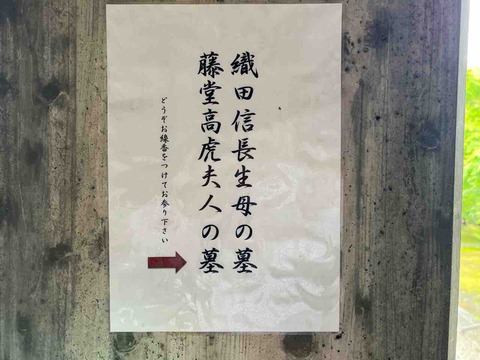 織田信長生母の墓
藤堂高虎夫人の墓
どうぞお線香をつけてお参り下さい